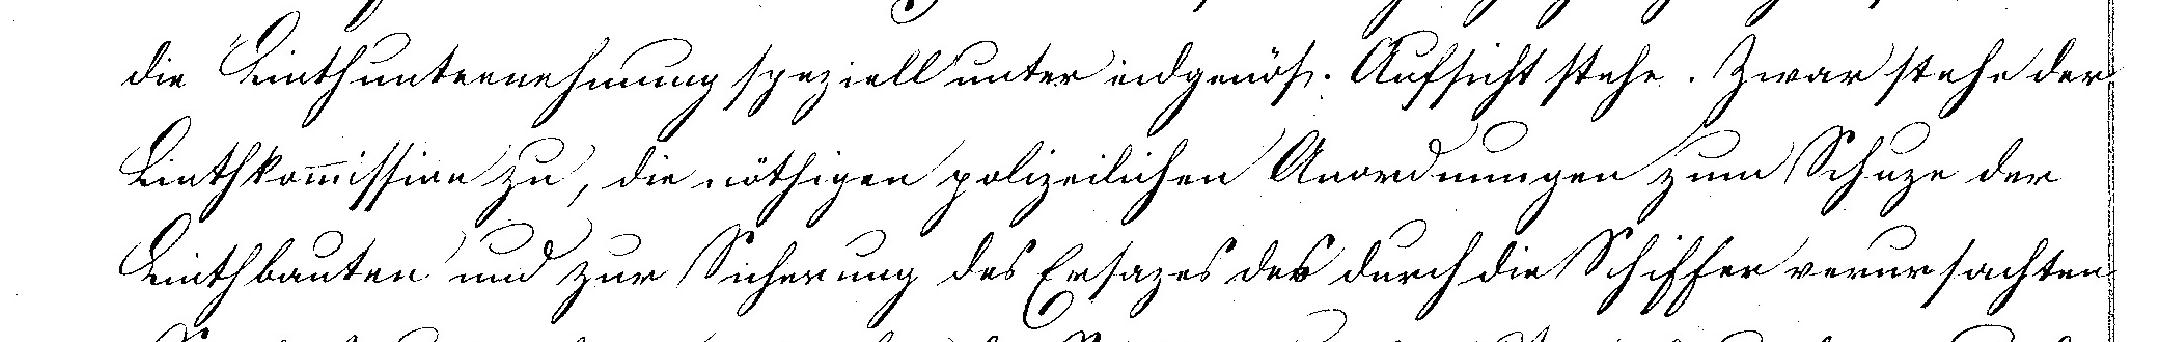 die Linthunternehmung speziell unter eidgenöß. Aufsicht stehe. Zwar stehe der
Linthkom̅ission zu, die nöthigen polizeilichen Anordnungen zum Schuze der
Linthbauten und zur Sicherung des Ersazes des durch die Schiffer verursachten